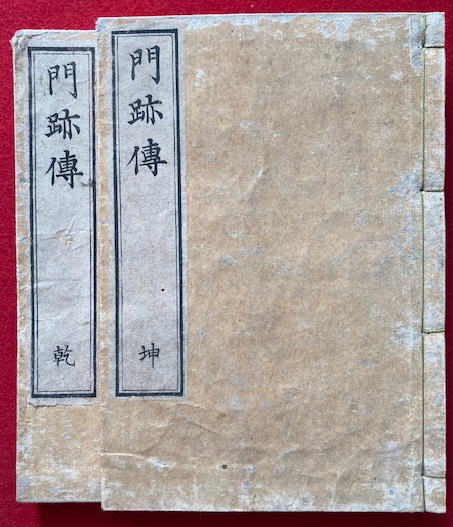 門跡傳 坤
門跡傳 乾